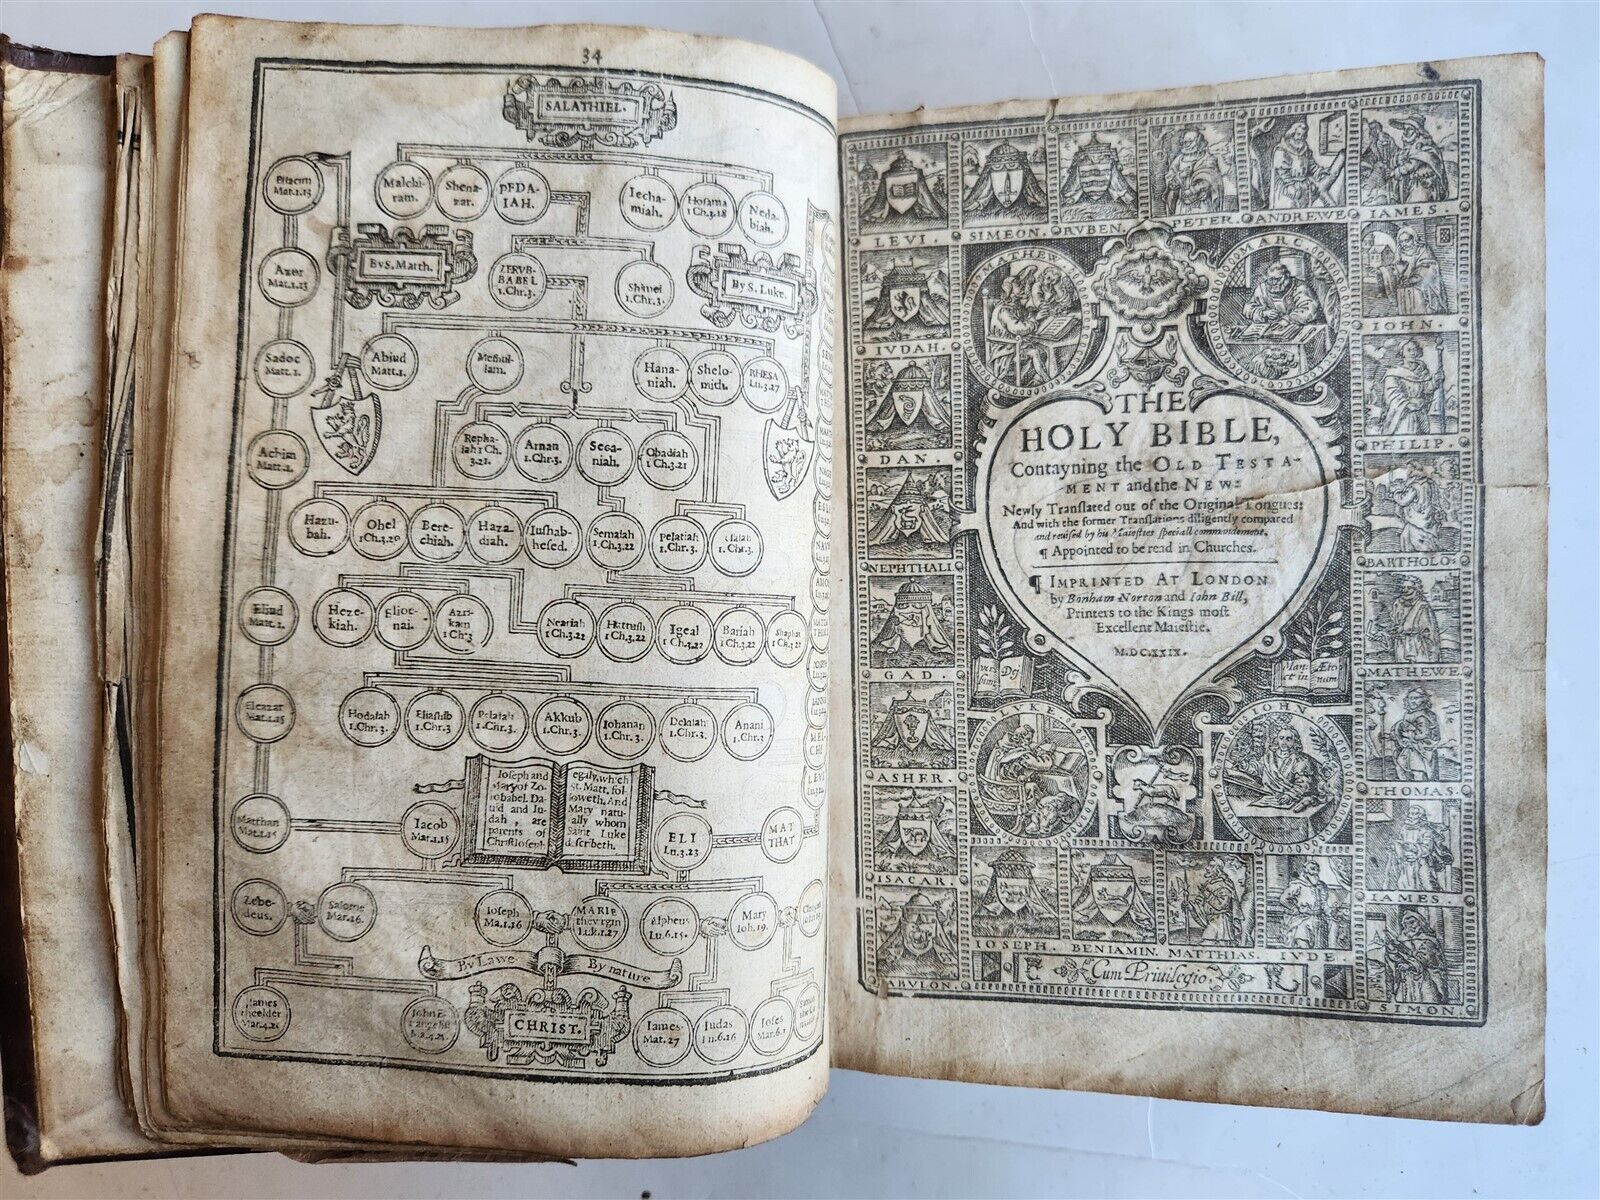 34
SALATHIEL.
Mat.1.13
Malchi-
ram.
Shena-
zar.
PEDA-
IAH.
Iecha-
miah.
Hosama
1 Ch.3.18
Neda-
biah.
Azer
Mat.1.13
By S. Matth.
ZERVB-
BABEL
1.Chr.3.
Shimei
1.Chr.3.
By S. Luke.
Sadoc
Matt.1.
Abiud
Matt.1.
Meshul-
lam.
Hana-
niah.
Shelo-
mith.
RHESA
Lu.3.27
Achim
Matt.1.
Repha-
iah 1 Ch.
3.21.
Arnan
1.Chr.3.
Seca-
niah.
Obadiah
1 Ch.3.21
Hazu-
bah.
Ohel
1Ch.3.20
Bere-
chiah.
Haza-
diah.
Iushab-
hesed.
Semaiah
1 Ch.3.22
Pelatiah
1.Chr.3.
Isaiah
1.Chr.3.
Eliud
Matt.1.
Heze-
kiah.
Elioe-
nai.
Azri-
kam
1 Ch.3
Neariah
1 Ch.3.22
Hattush
1 Ch.3.22
Igeal
1 Ch.3.22
Bariah
1 Ch.3.22
Shaphat
1 Ch.3.22
Eleazar
Mat.1.15
Hodaiah
1.Chr.3.
Eliashib
1.Chr.3.
Pelaiah
1.Chr.3.
Akkub
1.Chr.3.
Iohanan
1.Chr.3.
Delaiah
1.Chr.3.
Anani
1.Chr.3
MEL-
CHI
LEVI
Matthan
Mat.1.15
Iacob
Mat.1.15
Ioseph and
Mary of Zo-
robabel. Da-
uid and Iu-
dah, are
parents of
Christ Ioseph
egaly, which
St. Matt. fol-
loweth. And
Mary natu-
ally whom
Saint Luke
describeth.
ELI
Lu.3.23
MAT
THAT
Zebe-
deus.
Salome
Mar.16.
Ioseph
Ma.1.16
MARIE
the virgin
Luk.1.27
Alpheus
Lu.6.15.
Mary
Ioh.19.
By Lawe
By nature
Iames
the elder
Mar.4.21
CHRIST.
Iames
Mat.27
Iudas
Lu.6.16
Ioses
Mar.6.3
LEVI.
SIMEON.
RVBEN.
PETER.
ANDREWE
IAMES.
MATHEW
MARC.
IVDAH.
IOHN.
DAN.
PHILIP.
THE
HOLY BIBLE,
Contayning the OLD TESTA-
MENT and the NEW:
Newly Translated out of the Original Tongues:
And with the former Translations diligently compared
and reuised by his Maiesties speciall commandement.
¶ Appointed to be read in Churches.
¶ IMPRINTED AT LONDON
by Bonham Norton and Iohn Bill,
Printers to the Kings most
Excellent Maiestie.
M.DC.XXIX.
NEPHTHALI
BARTHOLO:
GAD.
Ver-
bum
Dei
Man-
et in
Æter
num
MATHEWE
LVKE.
IOHN.
ASHER.
THOMAS.
ISACAR.
IAMES.
IOSEPH.
BENIAMIN.
MATTHIAS.
IVDE.
Cum Priuilegio
ABVLON.
SIMON.